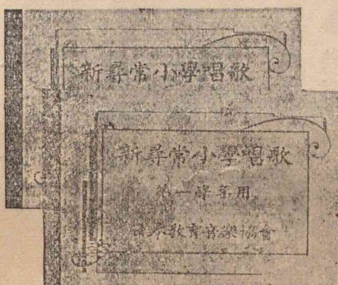 新尋常小學唱歌
新尋常小學唱歌
第一學年用
日本教育音樂協會